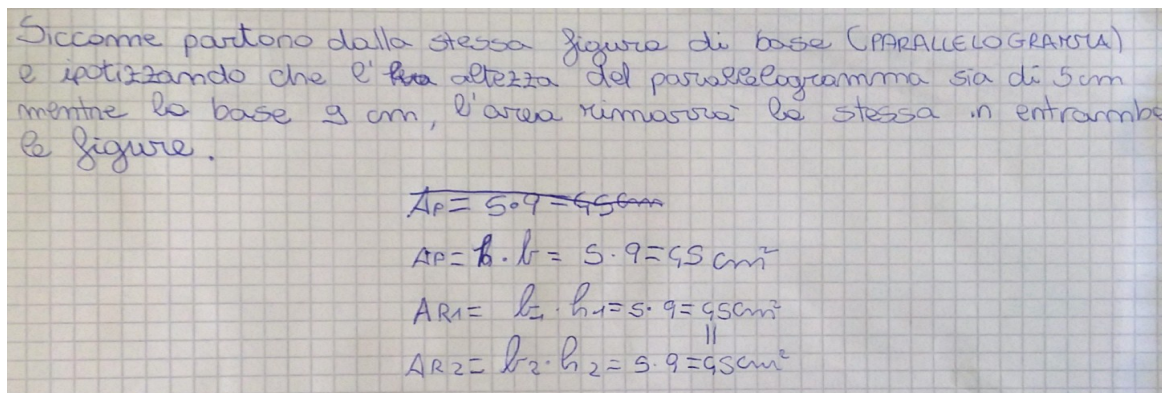 Siccome partono dalla stessa figura di base (PARALLELOGRAMMA)
e ipotizzando che l' altezza del parallelogramma sia di 5cm
mentre la base 9 cm, l'area rimarrà la stessa in entrambe
le figure.
AP= 5•9=45cm
AP= h•b= 5•9=45 cm²
AR1= b1•h1=5•9=45cm²
=
AR2= b2•h2=5•9=45cm²